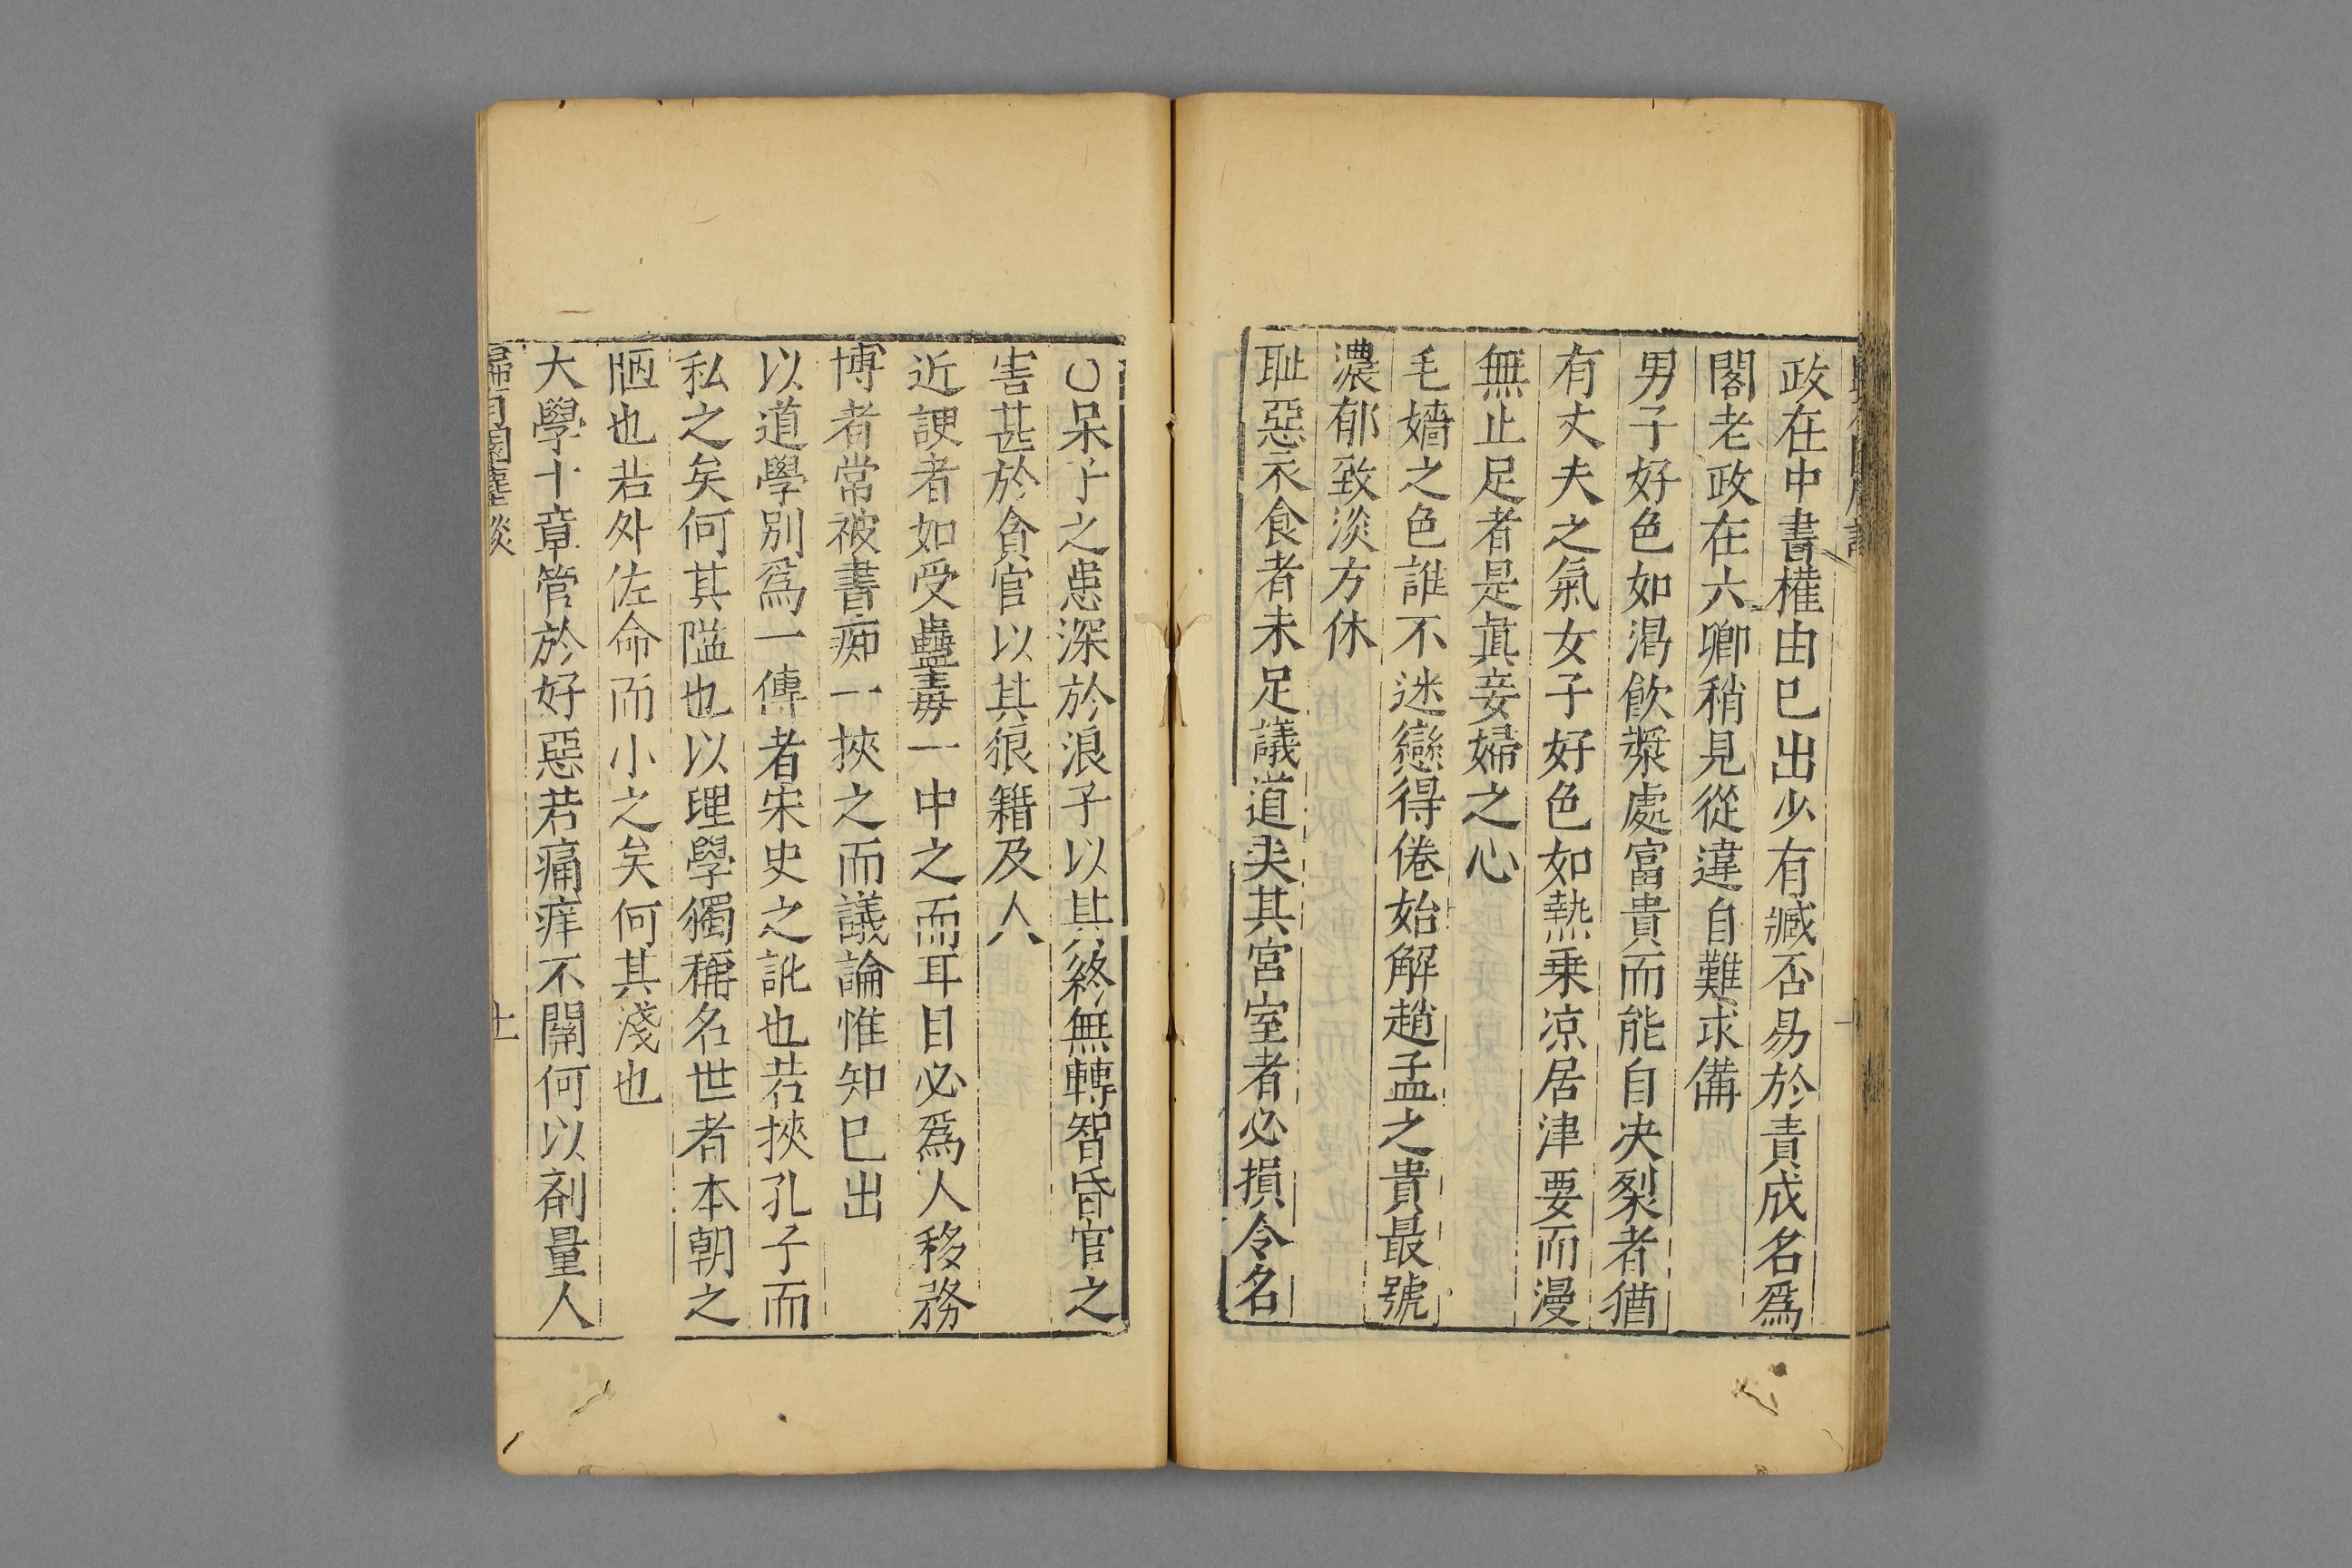 政在中書權由已出少有臧否易於責成名爲
閣老政在六卿稍見從違自難求備
男子好色如渴飲漿處富貴而能自决裂者猶
有丈夫之氣女子好色如熱乗凉居津要而漫
無止足者是眞妾婦之心
毛嬙之色誰不迷戀得倦始解趙孟之貴最號
濃郁致淡方休
耻惡衣食者未足議道美其宮室者必損令名
〇呆子之患深於浪子以其終無轉智昏官之
害甚於貪官以其狼籍及人
近諛者如受蠱毒一中之而耳目必爲人移務
博者常被書痴一挾之而議論惟知已出
以道學別爲一傳者宋史之訛也若挾孔子而
私之矣何其隘也以理學獨稱名世者本朝之
陋也若外佐命而小之矣何其淺也
大學十章管於好惡若痛痒不關何以劑量人
歸有園麈談
十一